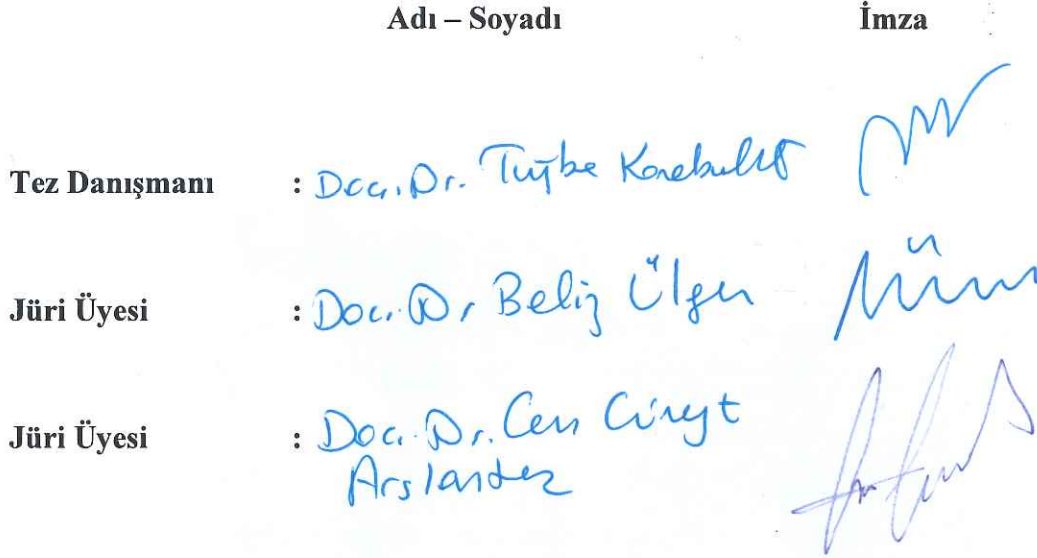 Adı – Soyadı İmza
Tez Danışmanı : Doç. Dr. Tuğba Karabulut
Jüri Üyesi : Doç. Dr Beliz Ülgen
Jüri Üyesi : Doç. Dr. Cem Cüneyt
Arslantaş